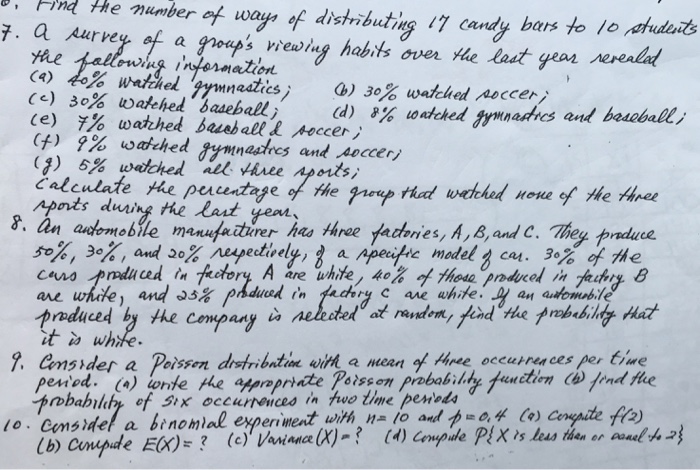 Find the number of ways of distributing 17 candy bars to 10 students
7. A survey of a group's viewing habits over the last year revealed
the following information
(a) 40% watched gymnastics; (b) 30% watched soccer;
(c) 30% watched baseball; (d) 8% watched gymnastics and baseball;
(e) 7% watched baseball & soccer;
(f) 9% watched gymnastics and soccer;
(g) 5% watched all three sports;
Calculate the percentage of the group that watched none of the three
sports during the last year.
8. An automobile manufacturer has three factories, A, B, and C. They produce
50%, 30%, and 20% respectively, of a specific model of car. 30% of the
cars produced in factory A are white, 40% of those produced in factory B
are white, and 25% produced in factory C are white. If an automobile
produced by the company is selected at random, find the probability that
it is white.
9. Consider a Poisson distribution with a mean of three occurrences per time
period. (a) write the appropriate Poisson probability function (b) find the
probability of six occurrences in two time periods
10. Consider a binomial experiment with n=10 and p=0.4 (a) Compute f(2)
(b) Compute E(X)=? (c) Variance(X)=? (d) Compute P{X is less than or equal to 2}